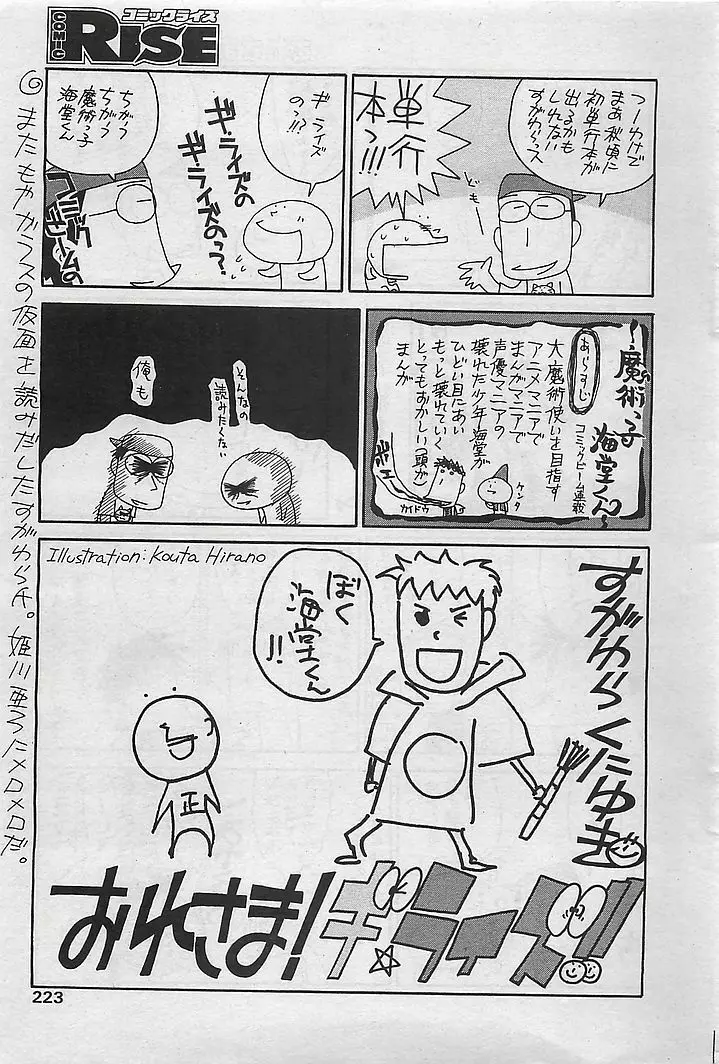 コミックライズ
COMIC
RISE
つーわけで
まあ秋頃に
初単行本が
出るかも
しれない
すがわらっス
ども
単行
本
っ!!!
ギ・ライズ
のっ!!?
ギ・ライズの
ギ・ライズのっ?
ちがう
ちがう
魔術っ子
海堂くん
コミック
ビームの
〜魔術っ子
海堂くん〜
コミックビーム連載
あらすじ
大魔術使いを目指す
アニメマニアで
まんがマニアで
声優マニアの
壊れた少年海堂が
ひどい目にあい
もっと壊れていく
とってもおかしい(頭が)
まんが
ケンタ
カイドウ
そんなの
読みたくない
俺も
Illustration: Kouta Hirano
すがわらくにゆき
ぼく
海堂くん
!!
正
おれさま!
ギ・ライズ!!
またもやガラスの仮面を読みだしたすがわら氏。姫川亜弓にメロメロだ。
223